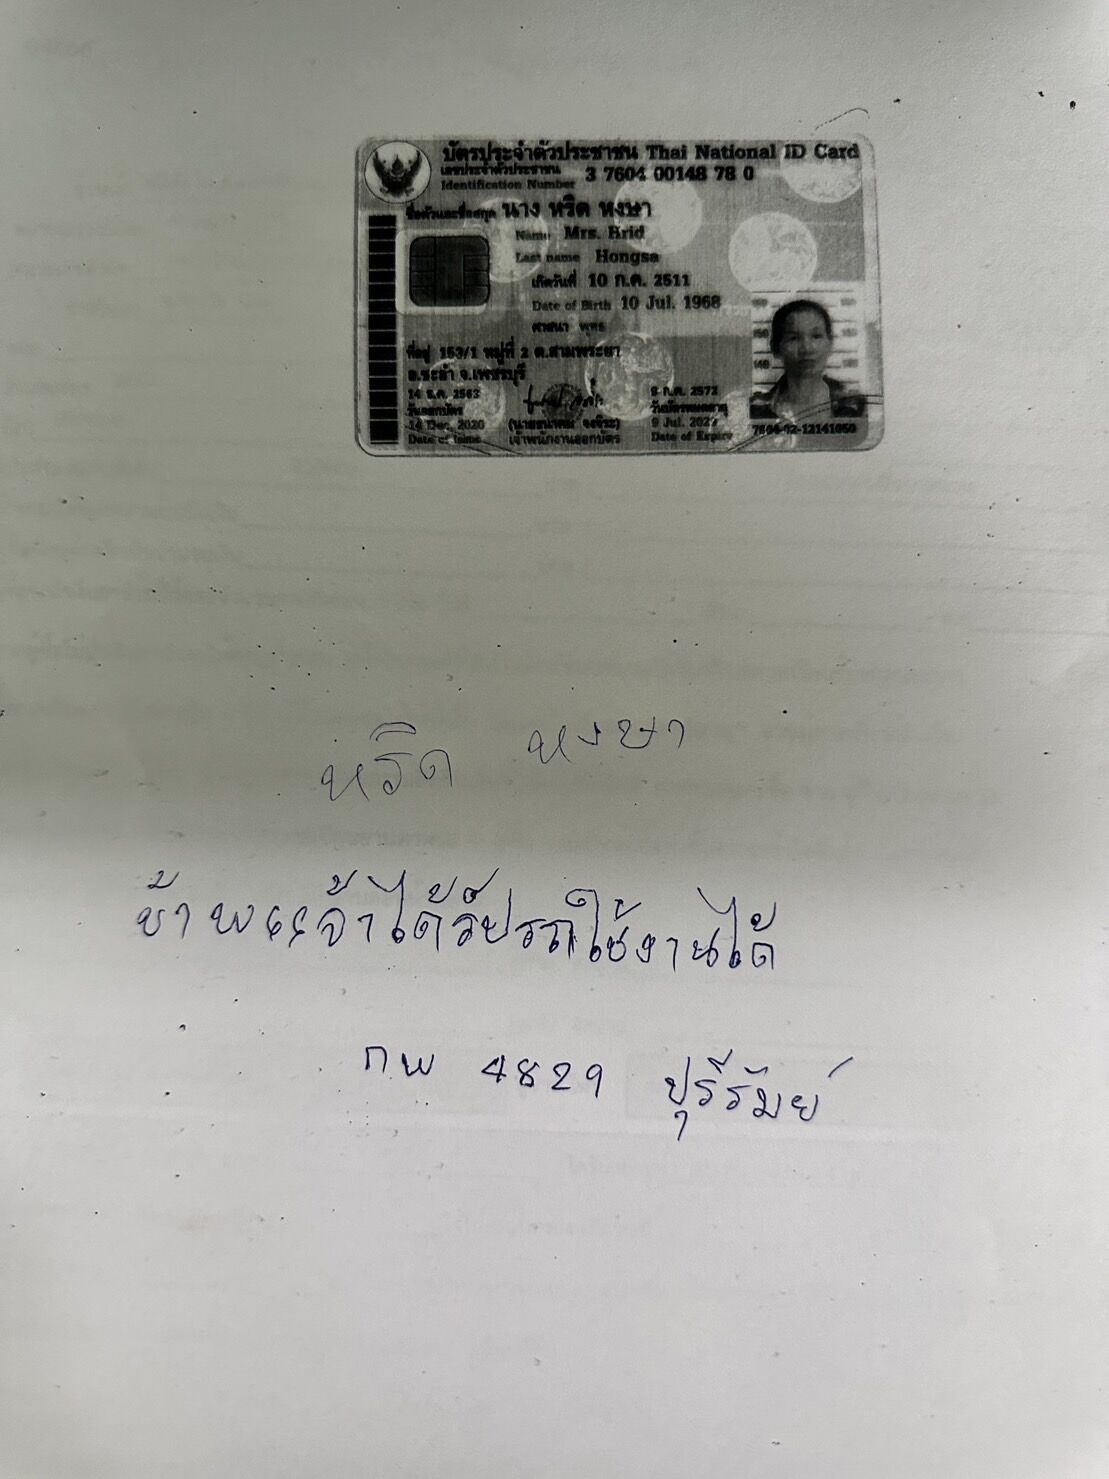 บัตรประจำตัวประชาชน Thai National ID Card
เลขประจำตัวประชาชน
Identification Number 3 7604 00148 78 0
ชื่อตัวและชื่อสกุล นาง หริด หงษา
Name Mrs. Hrid
Last name Hongsa
เกิดวันที่ 10 ก.ค. 2511
Date of Birth 10 Jul. 1968
ศาสนา พุทธ
ที่อยู่ 153/1 หมู่ที่ 2 ต.สามพระยา
อ.ชะอำ จ.เพชรบุรี
14 ธ.ค. 2563
วันออกบัตร
14 Dec. 2020
Date of Issue
เจ้าพนักงานออกบัตร
9 ก.ค. 2572
วันบัตรหมดอายุ
9 Jul. 2029
Date of Expiry
7604-02-12141050
หริด หงษา
ข้าพเจ้าได้รับรถใช้งานได้
กพ 4829 บุรีรัมย์